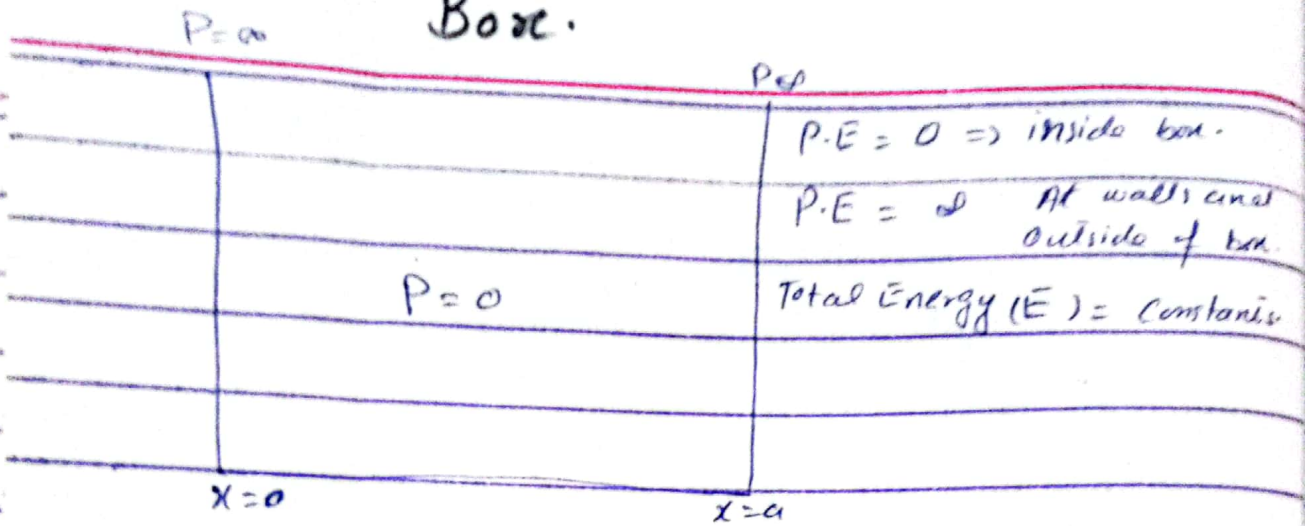 Box.
P = ∞
P = ∞
P.E = 0 => inside box.
P.E = ∞ At walls and
outside of box.
P = 0
Total Energy (E) = Constant.
x = 0
x = a